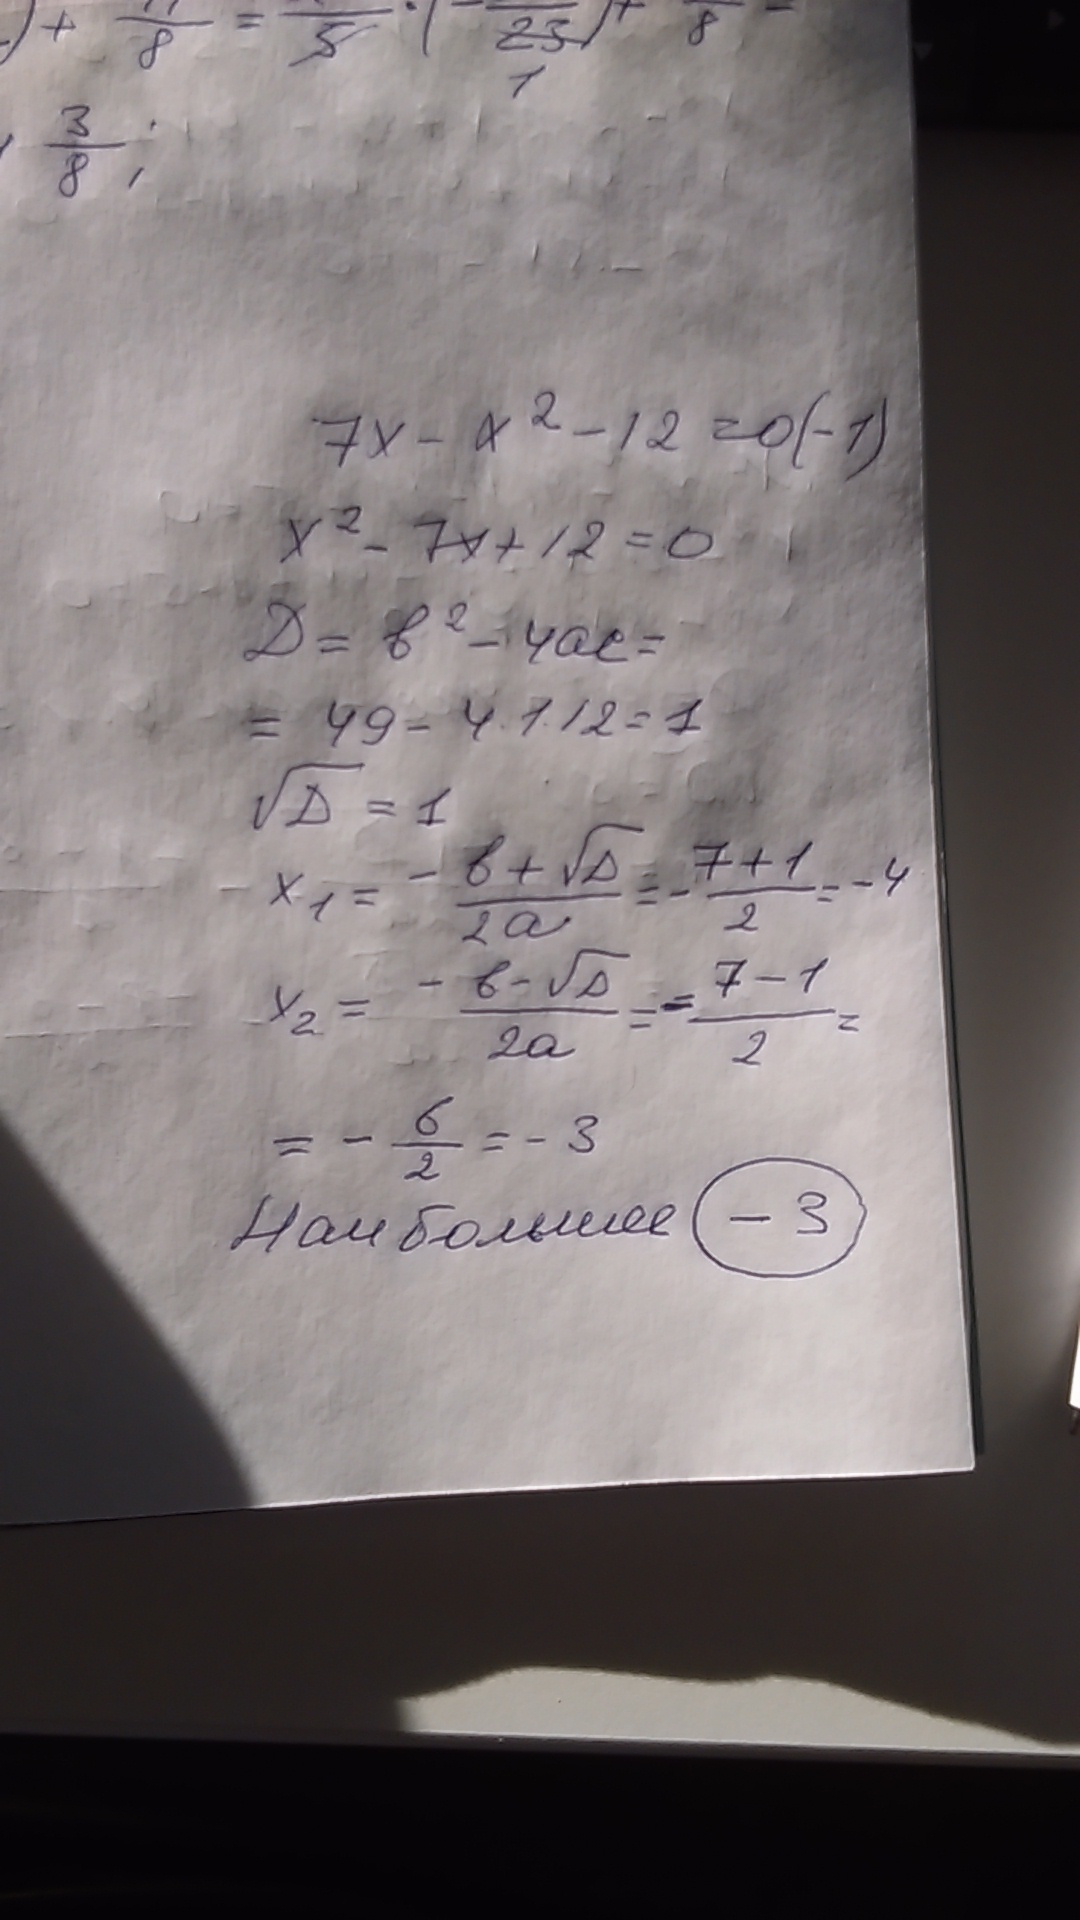 ) + /8 = /5 · (- /23) + /8 =
1
3/8 ;
7x - x² - 12 = 0 (-1)
x² - 7x + 12 = 0
D = b² - 4ac =
= 49 - 4·1·12 = 1
√D = 1
x₁ = - b + √D / 2a = - 7 + 1 / 2 = -4
x₂ = - b - √D / 2a = - 7 - 1 / 2 =
= - 6/2 = - 3
Наибольшее - 3